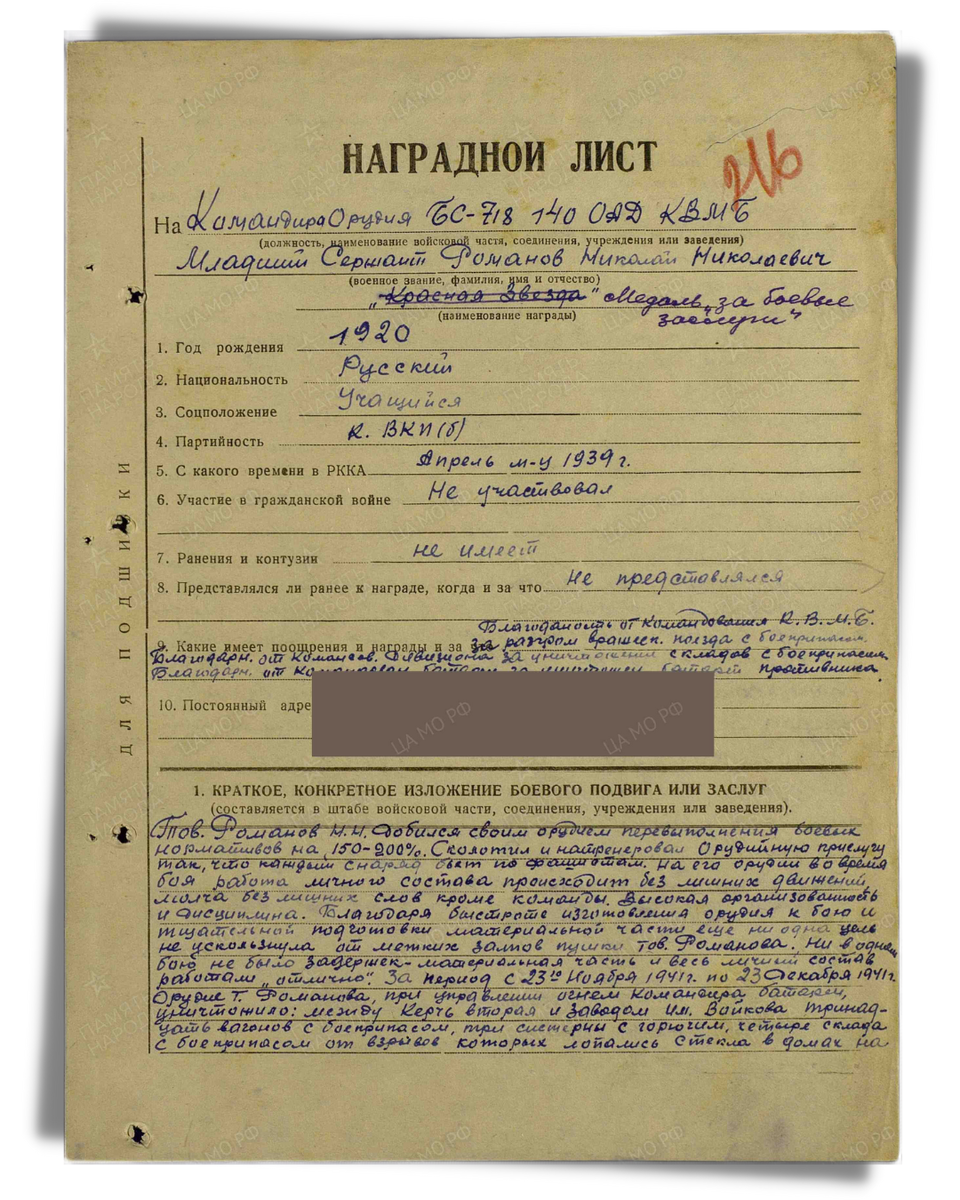 НАГРАДНОЙ ЛИСТ
216
На Командира Орудия БС-718 140 ОАД КВМБ
(должность, наименование войсковой части, соединения, учреждения или заведения)
Младший Сержант Романов Николай Николаевич
(военное звание, фамилия, имя и отчество)
„Красная Звезда" Медаль „за боевые
(наименование награды) заслуги"
1. Год рождения 1920
2. Национальность Русский
3. Соцположение Учащийся
4. Партийность К. ВКП(б)
5. С какого времени в РККА Апрель м-ц 1939 г.
6. Участие в гражданской войне Не участвовал
7. Ранения и контузии не имеет
8. Представлялся ли ранее к награде, когда и за что Не представлялся
Благоданость от Командования К. В. М. Б.
9. Какие имеет поощрения и награды и за что за разгром вражеск. поезда с боеприпасом.
Благодарн. от Комансов. Дивизиона за уничтожении складов с боеприпасем
Благодарн. от Командован. батареи за уничтожен. батарей противника.
10. Постоянный адре
ДЛЯ ПОДШИВКИ
1. КРАТКОЕ, КОНКРЕТНОЕ ИЗЛОЖЕНИЕ БОЕВОГО ПОДВИГА ИЛИ ЗАСЛУГ
(составляется в штабе войсковой части, соединения, учреждения или заведения).
Тов. Романов Н.Н. добился своим орудием перевыполнения боевых
нормативов на 150-200%. Сколотил и натренеровал Орудийную прислугу
так, что каждый снаряд бьет по фашистам. На его орудии во время
боя работа личного состава происходит без лишних движений,
молча без лишних слов кроме команды. Высокая организованность
и дисциплина. Благодаря быстроте изготовления орудия к бою и
тщательной подготовки материальной части еще ни одна цель
не ускользнула от метких залпов пушки тов. Романова. Ни в одном
бою не было задержек - материальная часть и весь личный состав
работали „отлично". За период с 23го Ноября 1941г. по 23 Декабря 1941г.
Орудие т. Романова, при управлении огнем Командира батареи,
уничтожило: между Керчь вторая и заводом им. Войкова тринад-
цать вагонов с боеприпасом, три систерны с горючим, четыре склада
с боеприпасом от взрывов которых лопались стекла в домах на